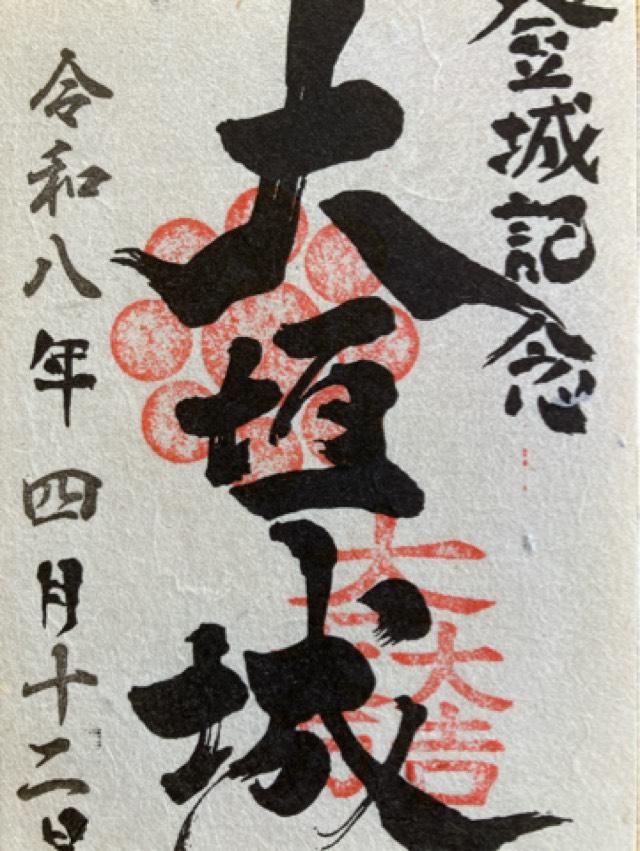 登城記念
大垣城
大一
大吉
令和八年四月十二日